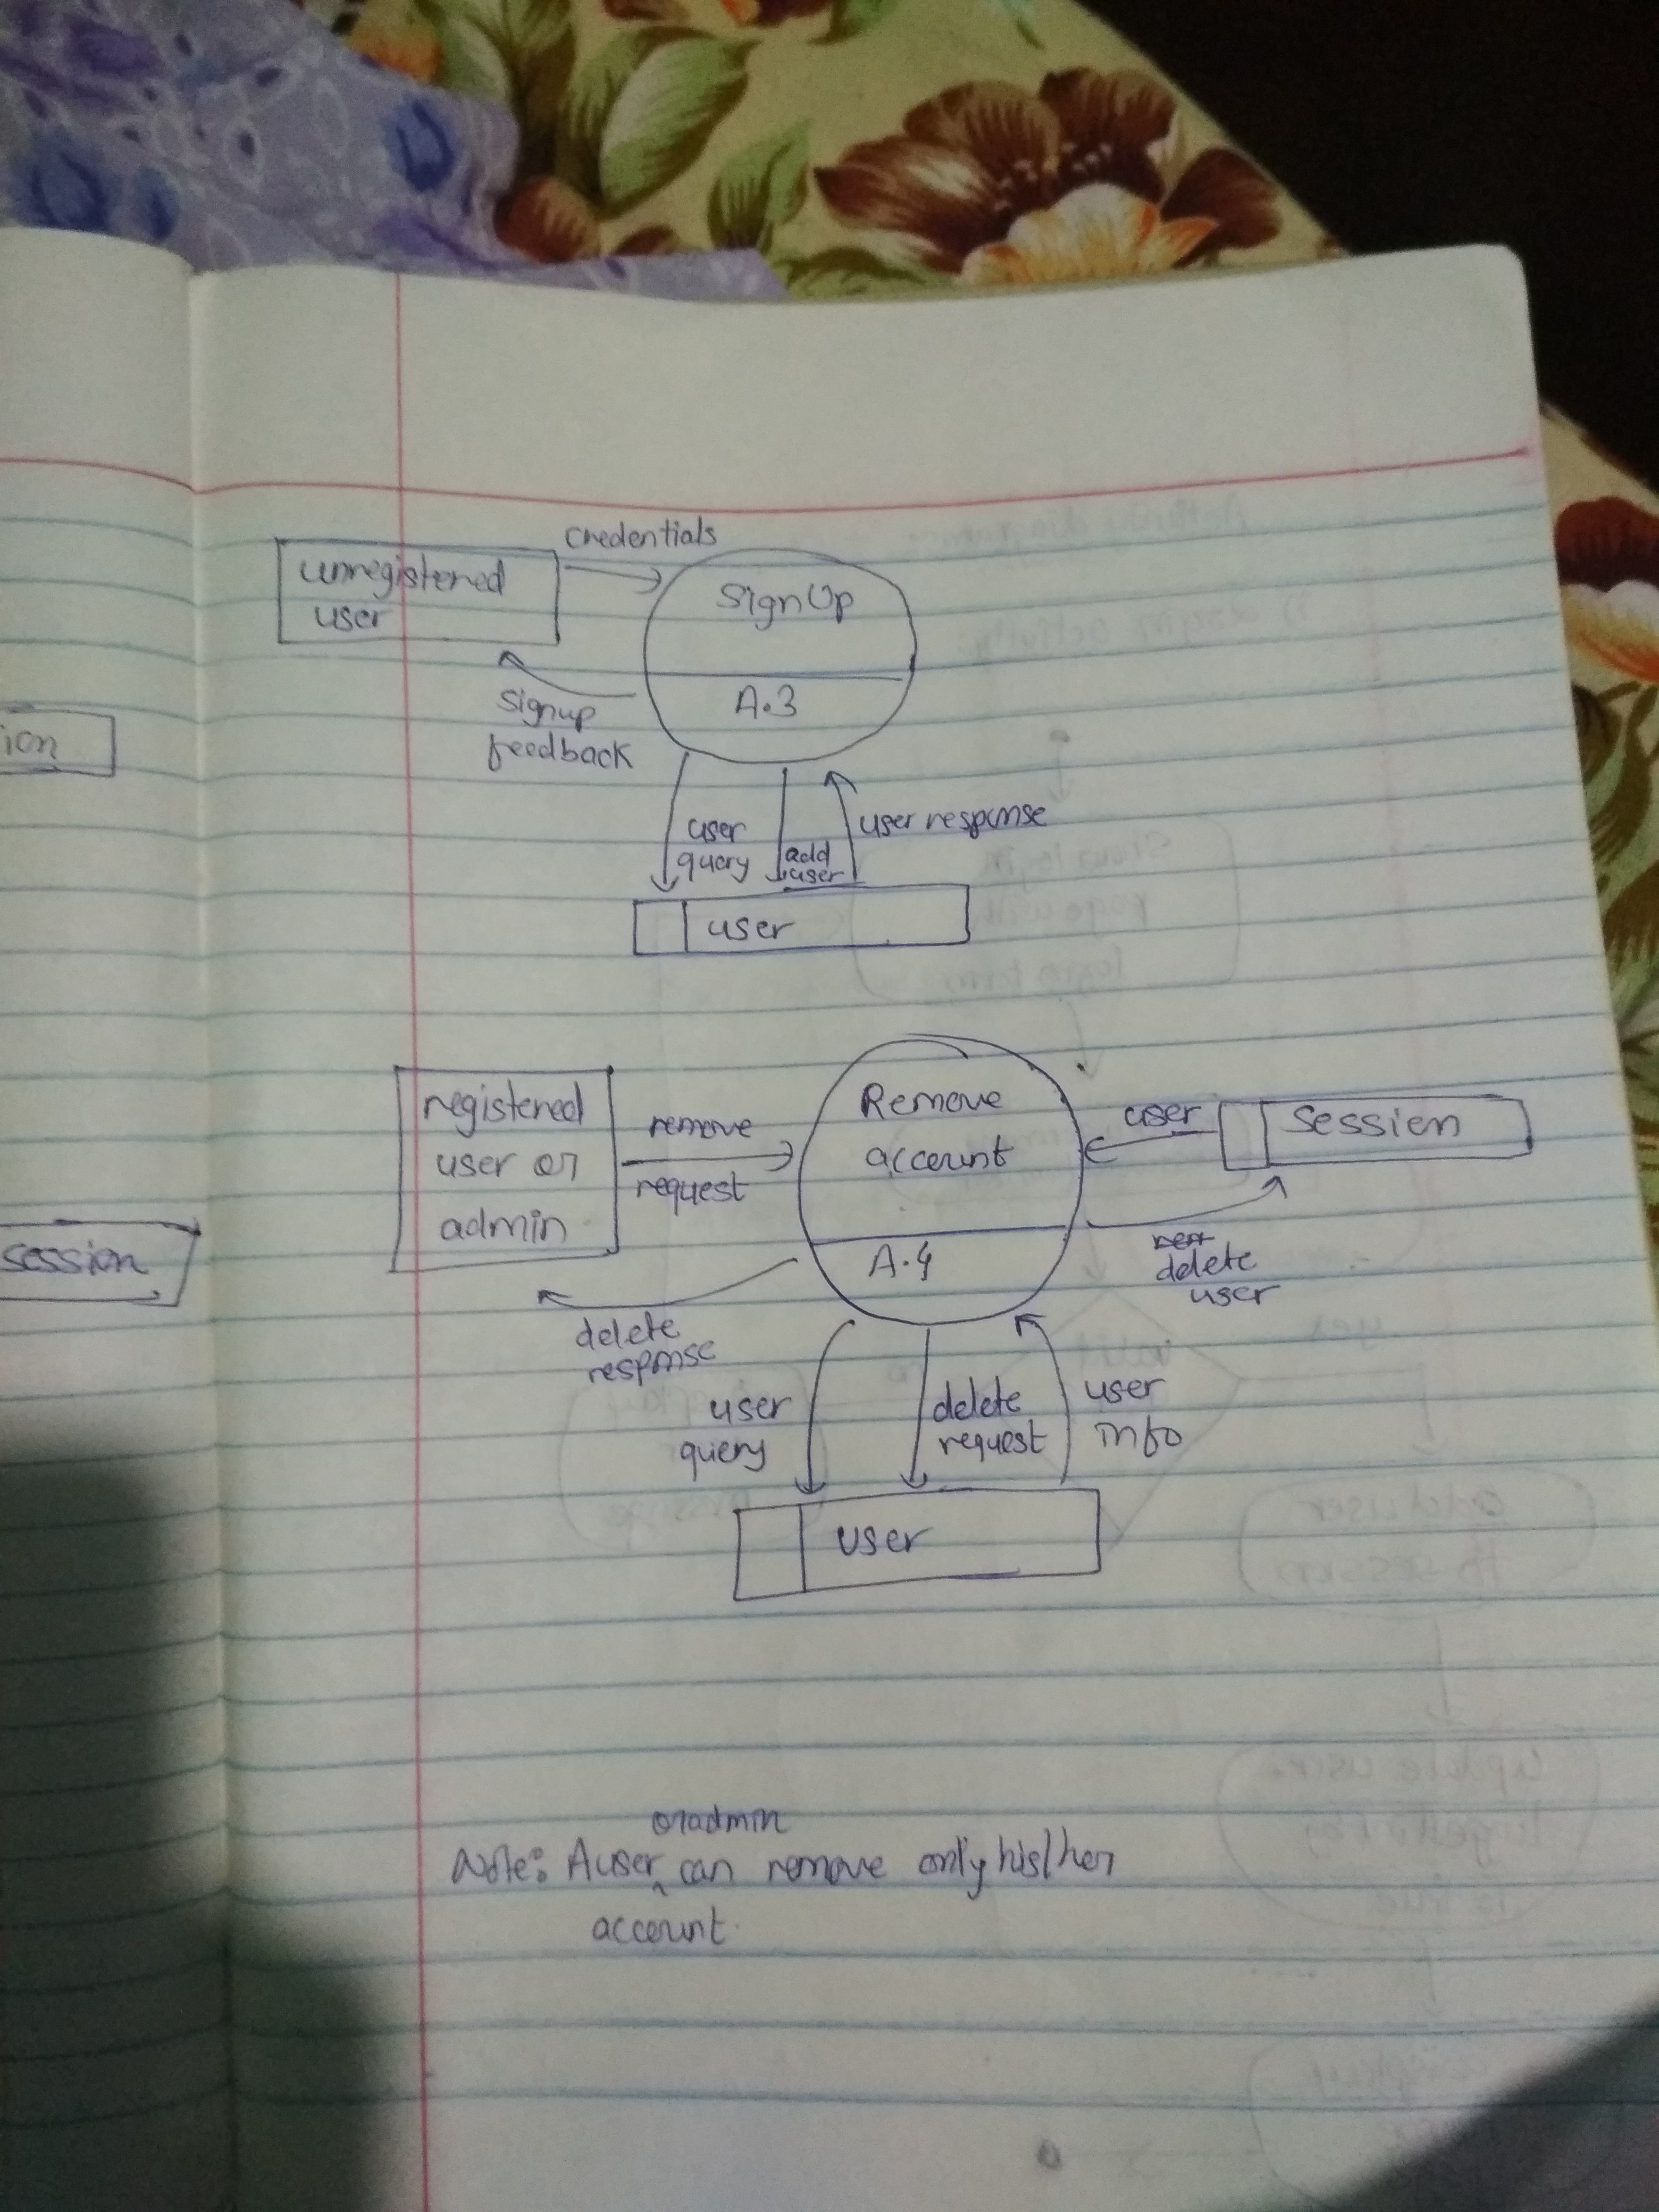 credentials
unregistered
user
SignUp
A.3
signup
feedback
user
query
add
user
user response
user
ion
registered
user or
admin
remove
request
Remove
account
A.4
user
session
delete
user
delete
response
user
query
delete
request
user
info
user
session
or admin
Note: A user ‸ can remove only his/her
account.